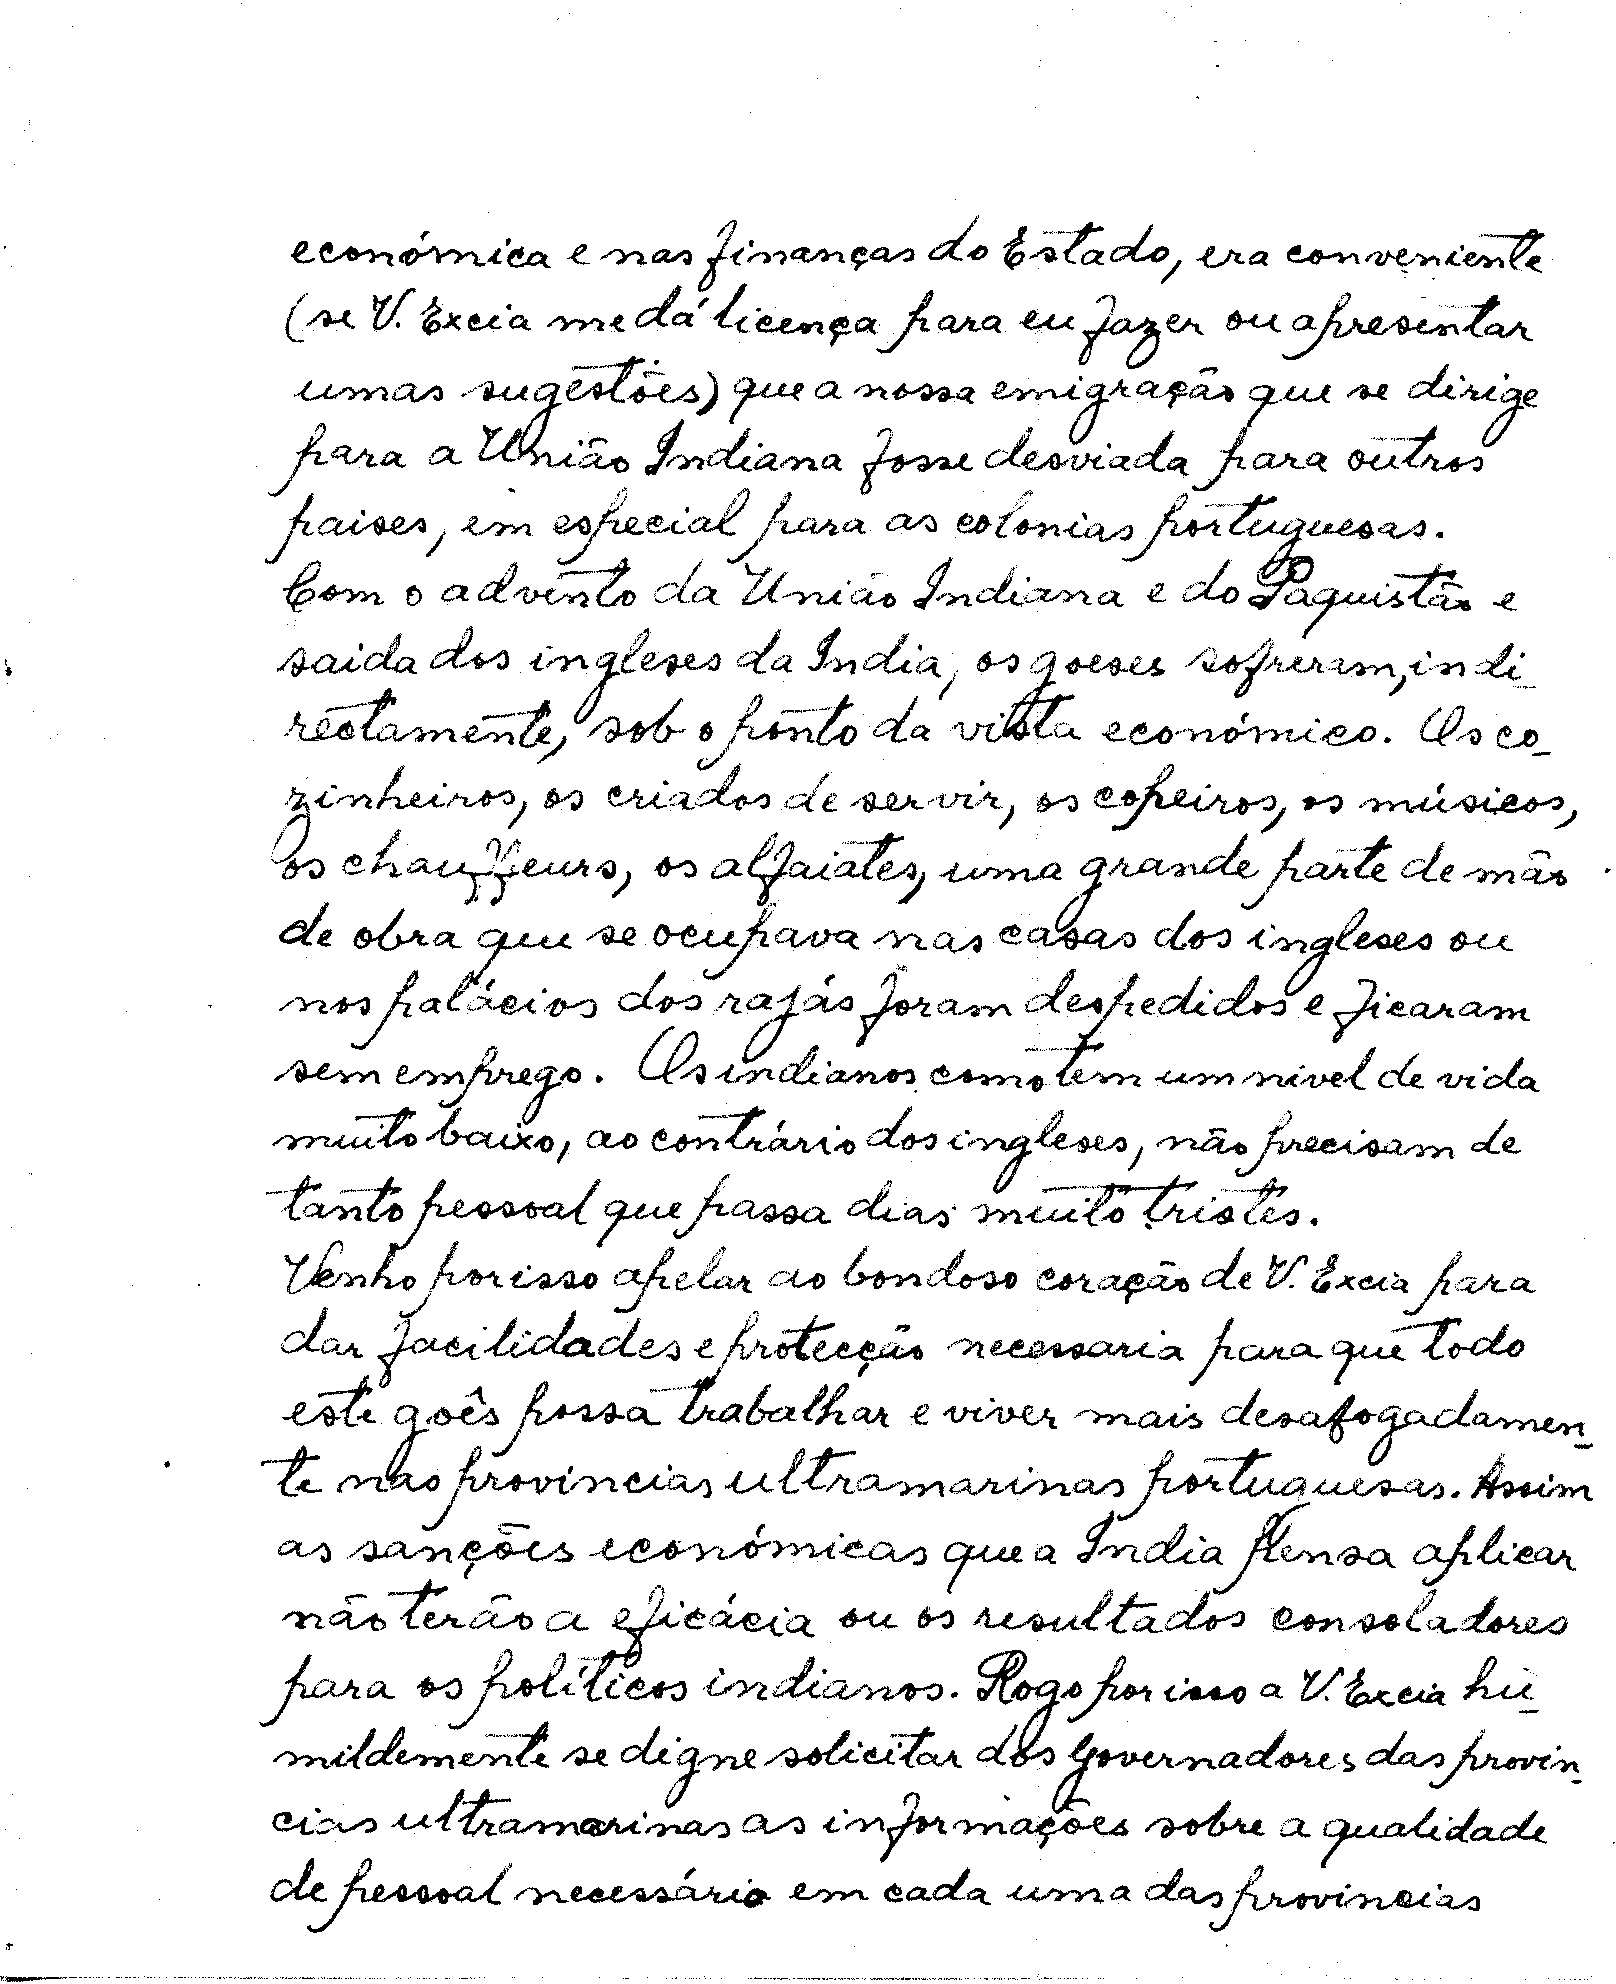 económica e nas finanças do Estado, era conveniente
(se V. Excia me dá licença para eu fazer ou apresentar
umas sugestões) que a nossa emigração que se dirige
para a União Indiana fosse desviada para outros
paises, em especial para as colonias portuguesas.
Com o advento da União Indiana e do Paquistão e
saida dos ingleses da India, os goeses sofreram, indi_
rectamente, sob o ponto da vista económico. Os co_
zinheiros, os criados de servir, os copeiros, os músicos,
os chauffeurs, os alfaiates, uma grande parte de mão
de obra que se ocupava nas casas dos ingleses ou
nos palácios dos rajás foram despedidos e ficaram
sem emprego. Os indianos como tem um nivel de vida
muito baixo, ao contrário dos ingleses, não precisam de
tanto pessoal que passa dias muito tristes.
Venho por isso apelar ao bondoso coração de V. Excia para
dar facilidades e protecção necessaria para que todo
este goês possa trabalhar e viver mais desafogadamen_
te nas provincias ultramarinas portuguesas. Assim
as sanções económicas que a India pensa aplicar
não terão a eficácia ou os resultados consoladores
para os políticos indianos. Rogo por isso a V. Excia hu_
mildemente se digne solicitar dos Governadores das provin_
cias ultramarinas as informações sobre a qualidade
de pessoal necessário em cada uma das provincias